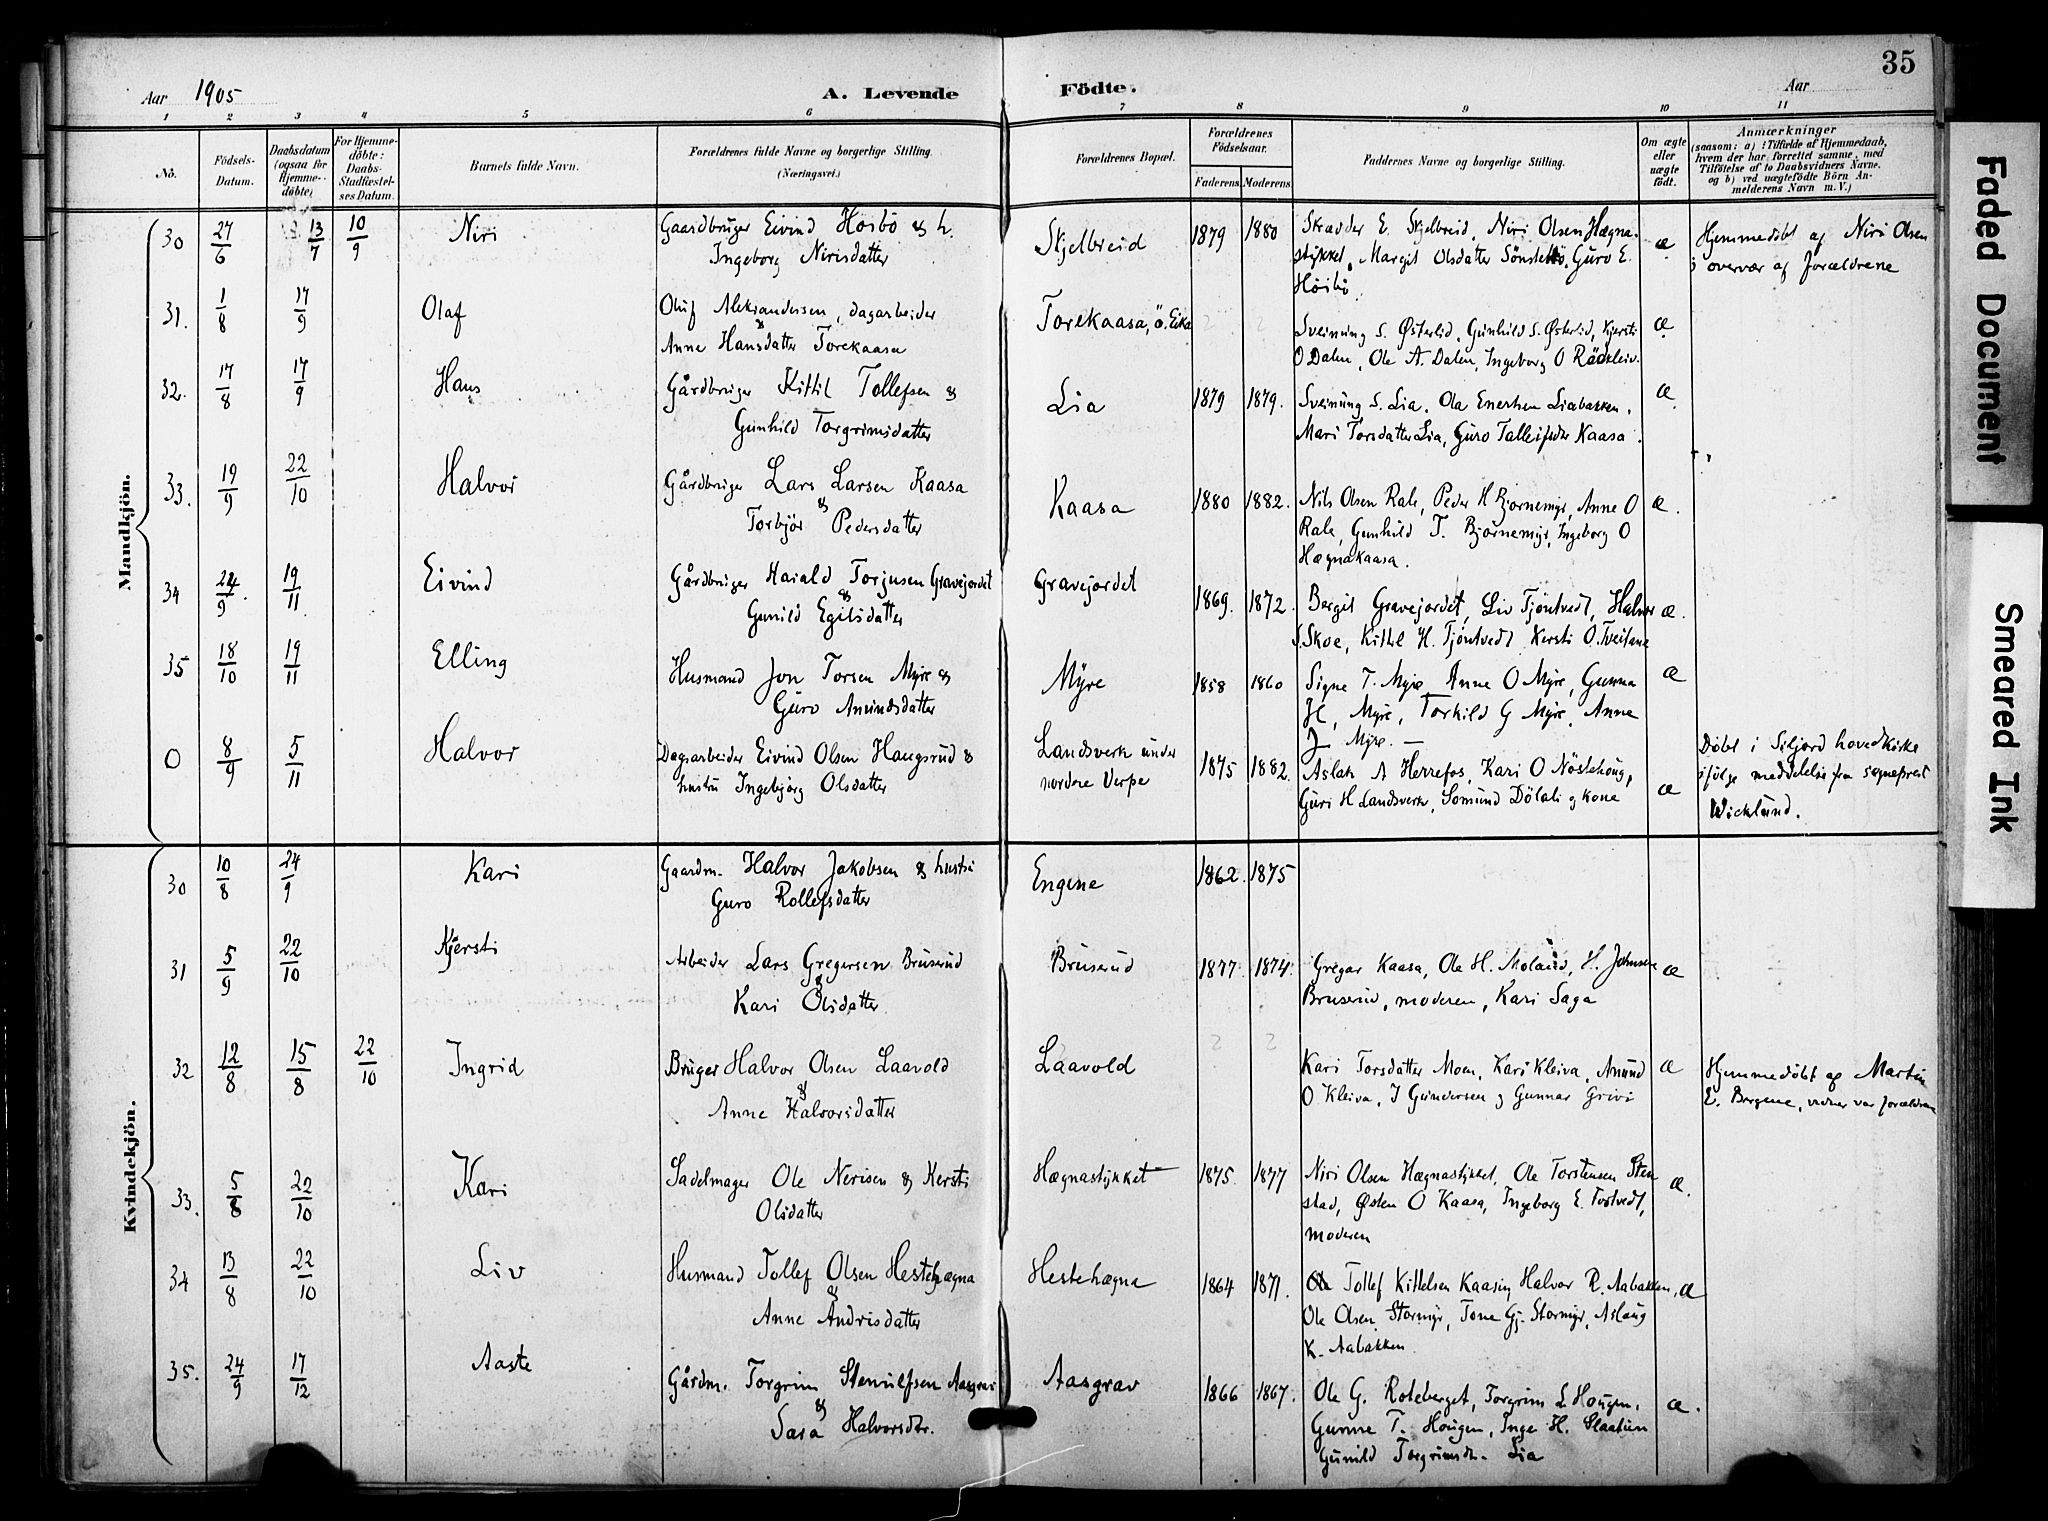 35
Aar 1905 A. Levende Födte. Aar
1 2 3 4 5 6 7 8 9 10 11
No. Födsels-Datum. Daabsdatum (ogsaa for Hjemme-döbte) For Hjemme-döbte: Daabs-Stadfæstelses Datum. Barnets fulde Navn. Forældrenes fulde Navne og borgerlige Stilling. (Næringsvei.) Forældrenes Bopæl. Forældrenes Födselsaar. Faderens Moderens Faddernes Navne og borgerlige Stilling. Om ægte eller uægte født. Anmærkninger (saasom: a) i Tilfælde af Hjemmedaab, hvem der har forrettet samme, med Tilføielse af to Daabsvidners Navne, og b) ved uægtefødte Börn Anmelderens Navn m. V.)
Mandkjön.
30 27/6 13/7 10/9 Niri Gaardbruger Eivind Höibö & h. Skjelbreid 1879 1880 Skrædder E. Skjelbreid, Niri Olsen Hægna- æ Hjemmedöbt af Niri Olsen
Ingeborg Nirisdatter stykket, Margit Olsdatter Sönstebö, Guro E. i overvær af forældrene
Höibö.
31. 1/8 17/9 Olaf Oluf Aleksandersen, dagarbeider Torekaasa, ö. Eika æ
& Anne Hansdatter Torekaasa Sveinung S. Østerlid, Gunhild S. Østerlid, Kjersti
O Dalen, Ole A. Dalen, Ingeborg O Rädkleiv.
32. 17/8 17/9 Hans Gårdbruger Kittil Tollefsen & Lia 1879 1879. Sveinung S. Lia. Ola Enersen Liabakken. æ.
Gunhild Torgrimsdatter Mari Torsdatter Lia, Guro Talleifsdtr Kaasa.
33. 19/9 22/10 Halvor Gårdbruger Lars Larsen Kaasa Kaasa 1880 1882. Nils Olsen Rale, Peder H Bjørnemyr, Anne O æ.
& Torbjör Pedersdatter Rale, Gunhild T. Bjørnemyr, Ingeborg O
Hægnakaasa.
34 24/9. 19/11. Eivind Gårdbruger Harald Torjusen Gravejordet Gravejordet 1869. 1872. Bergit Gravejordet, Liv Tjöntvedt, Halvor æ.
& Gunild Egilsdatter S. Skoe, Kittil H. Tjöntvedt Kersti O. Tveitane
35 18/10 19/11 Elling Husmand Jon Torsen Myre & Myre 1858 1860 Signe T. Myre, Anne O Myre, Gunna æ
Guro Anundsdatter H, Myre, Torkild G Myre, Anne
J Myre. —
0 8/9 5/11 Halvor Dagarbeider Eivind Olsen Haugsrud & Landsverk under 1875 1882. Aslak A Herrefos, Kari O Nöstehoug, æ Døbt i Seljord hovedkirke
hustru Ingebjörg Olsdatter nordre Verpe Guri H Landsverk, Somund Dölali og kone ifölge meddelelse fra sogneprest
Wicklund.
Kvindekjön.
30 10/8 24/9 Kari Gaardm. Halvor Jakobsen & hustru Engene 1862. 1875
Guro Rollefsdatter
31 5/9 22/10 Kjersti Arbeider Lars Gregersen Bruserud Bruserud 1877. 1874. Gregar Kaasa, Ole H. Moland, H. Johnsen æ
& Kari Olsdatter Bruserud, moderen, Kari Saga
32 12/8 15/8 22/10 Ingrid Bruger Halvor Olsen Laavold Laavold Kari Torsdatter Moen, Kari Kleiva, Anund æ Hjemmedöbt af Martin
& Anne Halvorsdatter O Kleiva, J Gundersen og Gunnar Grivi E. Bergene, vidner var forældrene
33. 5/8 22/10 Kari Sadelmager Ole Nerisen & Kersti Hægnastykket 1875. 1877 Niri Olsen Hægnastykket, Ole Torstensen Sten æ.
Olsdatter stad, Østen O Kaasa, Ingeborg E. Tvetvedt,
moderen
34 13/8 22/10 Liv Husmand Tollef Olsen Hestehægna Hestehægna 1864 1871. Tollef Kittelsen Kaasin, Halvor R. Aabakken, æ
& Anne Andrisdatter Ole Olsen Stormyr, Tone Gj. Stormyr, Aslaug
K. Aabakken
35. 24/9 17/12 Aaste Gårdm. Torgrim Stenulfsen Aasgrav Aasgrav 1866 1867. Ole G. Roteberget, Torgrim L Hougen, æ.
& Sara Halvorsdtr. Gunne T. Hougen, Inge H. Slaatten
Gunild Torgrimsdtr. Lia
Faded Document
Smeared Ink